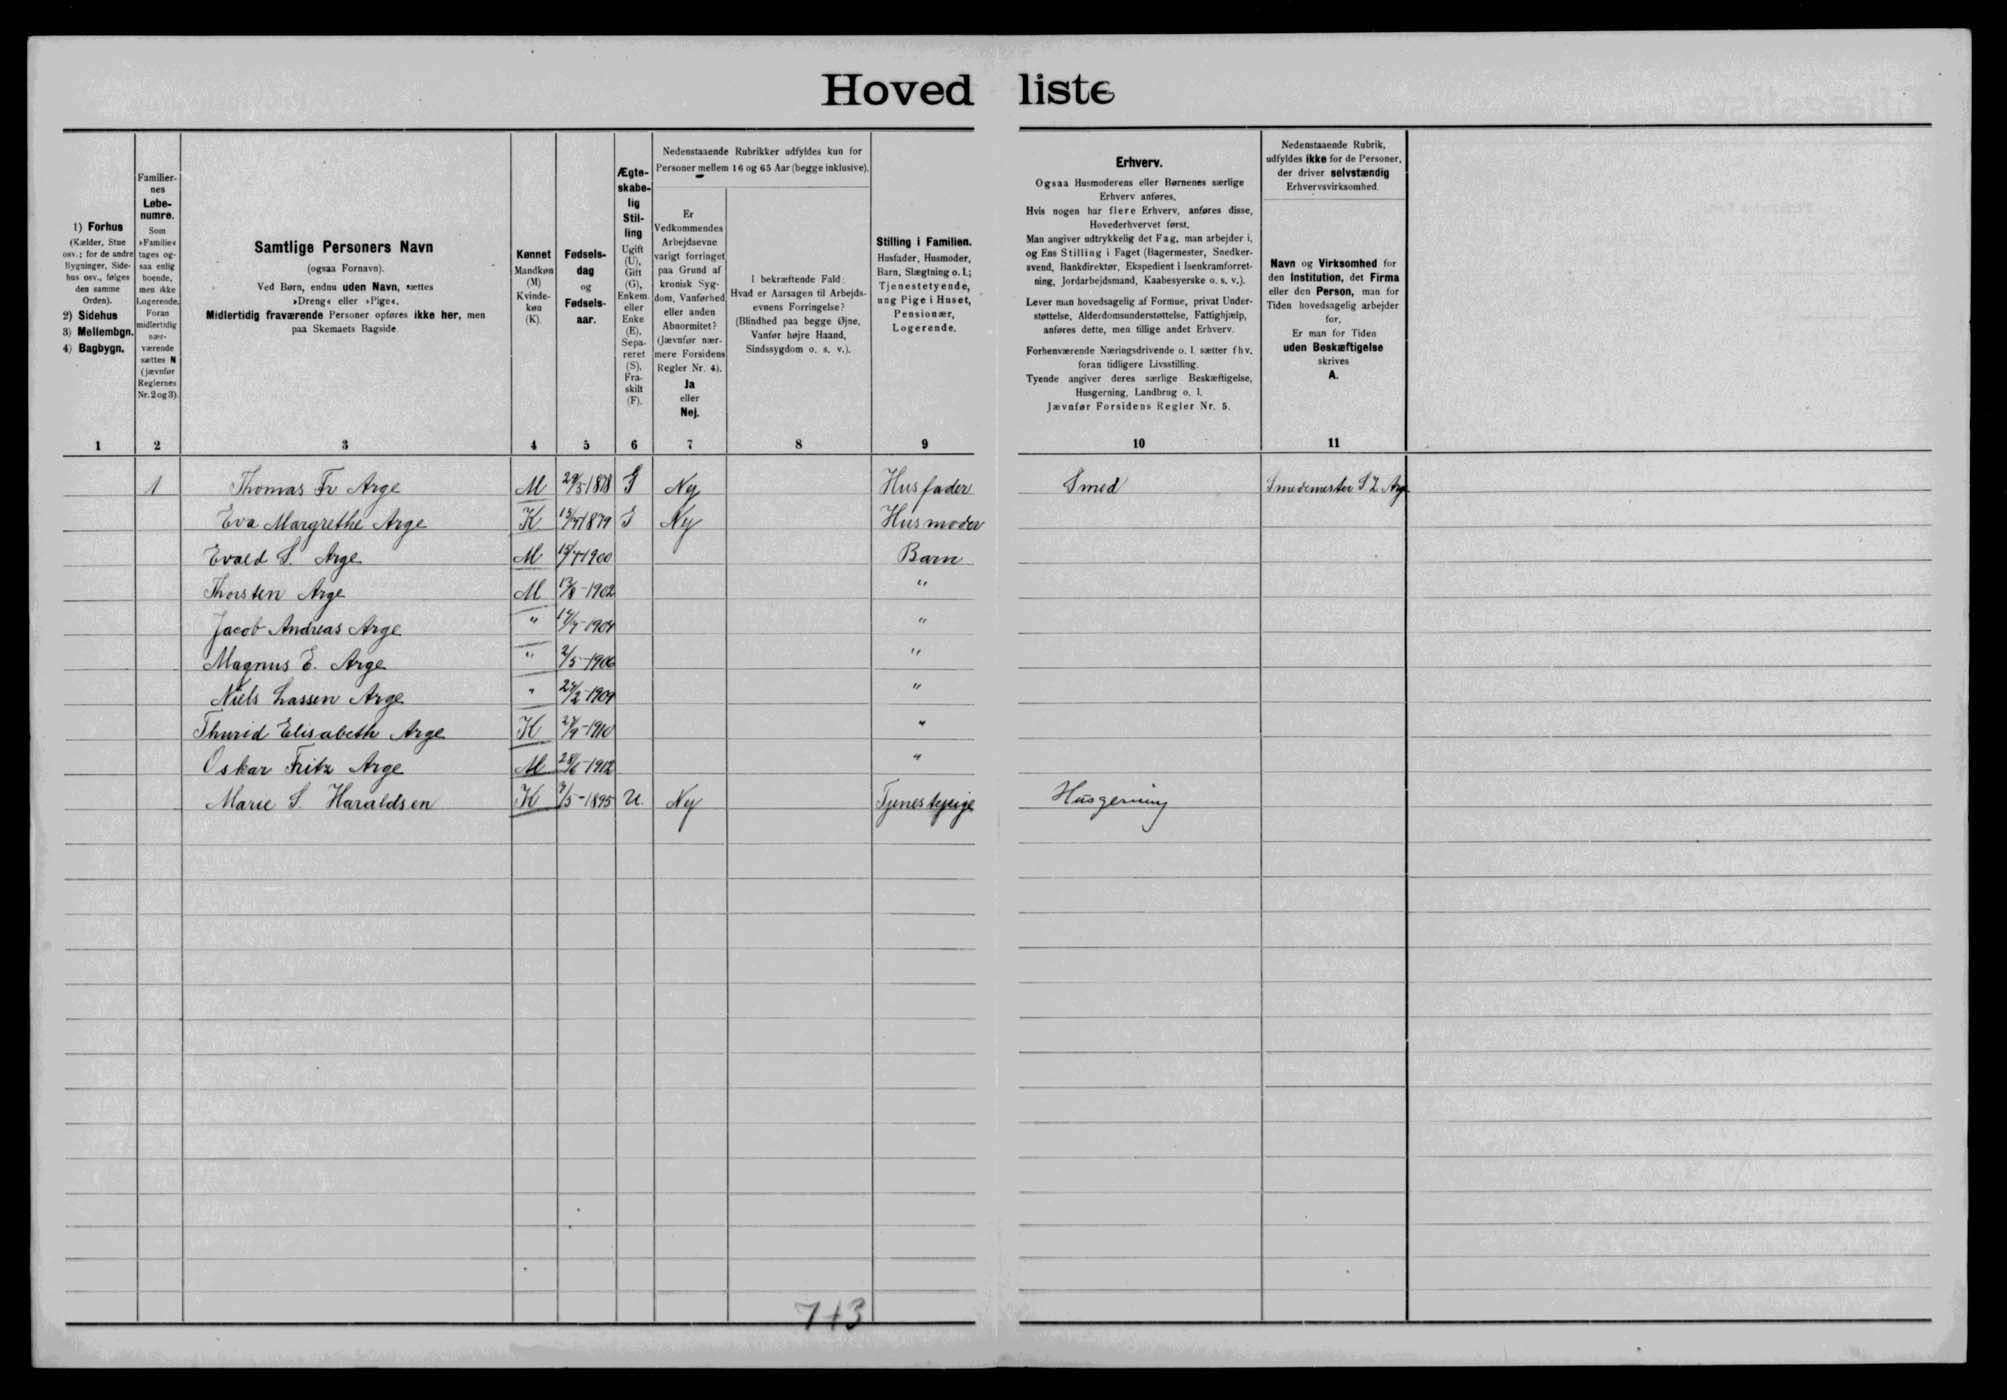 Hovedliste
1) Forhus
(Kælder, Stue
osv.; for de andre
Bygninger, Side-
hus osv., følges
den samme
Orden).
2) Sidehus
3) Mellembgn.
4) Bagbygn.
Familier-
nes
Løbe-
numre.
Som
»Familie«
tages og-
saa enlig
boende,
men ikke
Logerende.
Foran
midlertidig
nær-
værende
sættes N
(jævnfør
Reglernes
Nr. 2 og 3).
Samtlige Personers Navn
(ogsaa Fornavn).
Ved Børn, endnu uden Navn, sættes
»Dreng« eller »Pige«.
Midlertidig fraværende Personer opføres ikke her, men
paa Skemaets Bagside.
Kønnet
Mandkøn
(M)
Kvinde-
køn
(K).
Fødsels-
dag
og
Fødsels-
aar.
Ægte-
skabe-
lig
Stil-
ling
Ugift
(U),
Gift
(G),
Enkem.
eller
Enke
(E),
Sepa-
reret
(S),
Fra-
skilt
(F).
Nedenstaaende Rubrikker udfyldes kun for
Personer mellem 16 og 65 Aar (begge inklusive).
Er
Vedkommendes
Arbejdsevne
varigt forringet
paa Grund af
kronisk Syg-
dom, Vanførhed
eller anden
Abnormitet?
(Jævnfør nær-
mere Forsidens
Regler Nr. 4).
Ja
eller
Nej.
I bekræftende Fald:
Hvad er Aarsagen til Arbejds-
evnens Forringelse?
(Blindhed paa begge Øjne,
Vanfør højre Haand,
Sindssygdom o. s. v.).
Stilling i Familien.
Husfader, Husmoder,
Barn, Slægtning o. l.;
Tjenestetyende,
ung Pige i Huset,
Pensionær,
Logerende.
Erhverv.
Ogsaa Husmoderens eller Børnenes særlige
Erhverv anføres.
Hvis nogen har flere Erhverv, anføres disse,
Hovederhvervet først.
Man angiver udtrykkelig det Fag, man arbejder i,
og Ens Stilling i Faget (Bagermester, Snedker-
svend, Bankdirektør, Ekspedient i Isenkramforret-
ning, Jordarbejdsmand, Kaabesyerske o. s. v.).
Lever man hovedsagelig af Formue, privat Under-
støttelse, Alderdomsunderstøttelse, Fattighjælp,
anføres dette, men tillige andet Erhverv.
Forhenværende Næringsdrivende o. l. sætter fhv.
foran tidligere Livsstilling.
Tyende angiver deres særlige Beskæftigelse,
Husgerning, Landbrug o. l.
Jævnfør Forsidens Regler Nr. 5.
Nedenstaaende Rubrik,
udfyldes ikke for de Personer,
der driver selvstændig
Erhvervsvirksomhed.
Navn og Virksomhed for
den Institution, det Firma
eller den Person, man for
Tiden hovedsagelig arbejder
for.
Er man for Tiden
uden Beskæftigelse
skrives
A.
1 2 3 4 5 6 7 8 9 10 11
1 Thomas Fr Arge M 29/5-1878 G Nej Husfader Smed Smedemester
Eva Margrethe Arge K G Nej Husmoder
Evald S. Arge M Barn
Thorsten Arge M "
Jacob Andreas Arge " "
Magnus E. Arge " 2/5-1906 "
Niels Lassen Arge " "
Thurid Elisabeth Arge K "
Oskar Fritz Arge M "
Marie S. Haraldsen K U Nej Tjenestepige Husgerning
7+3